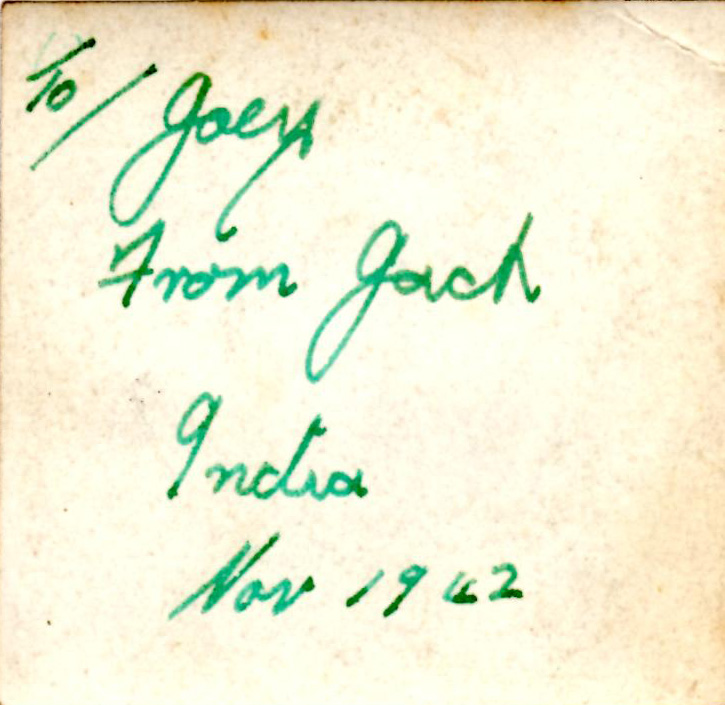 To/ Joey
From Jack
India
Nov 1942